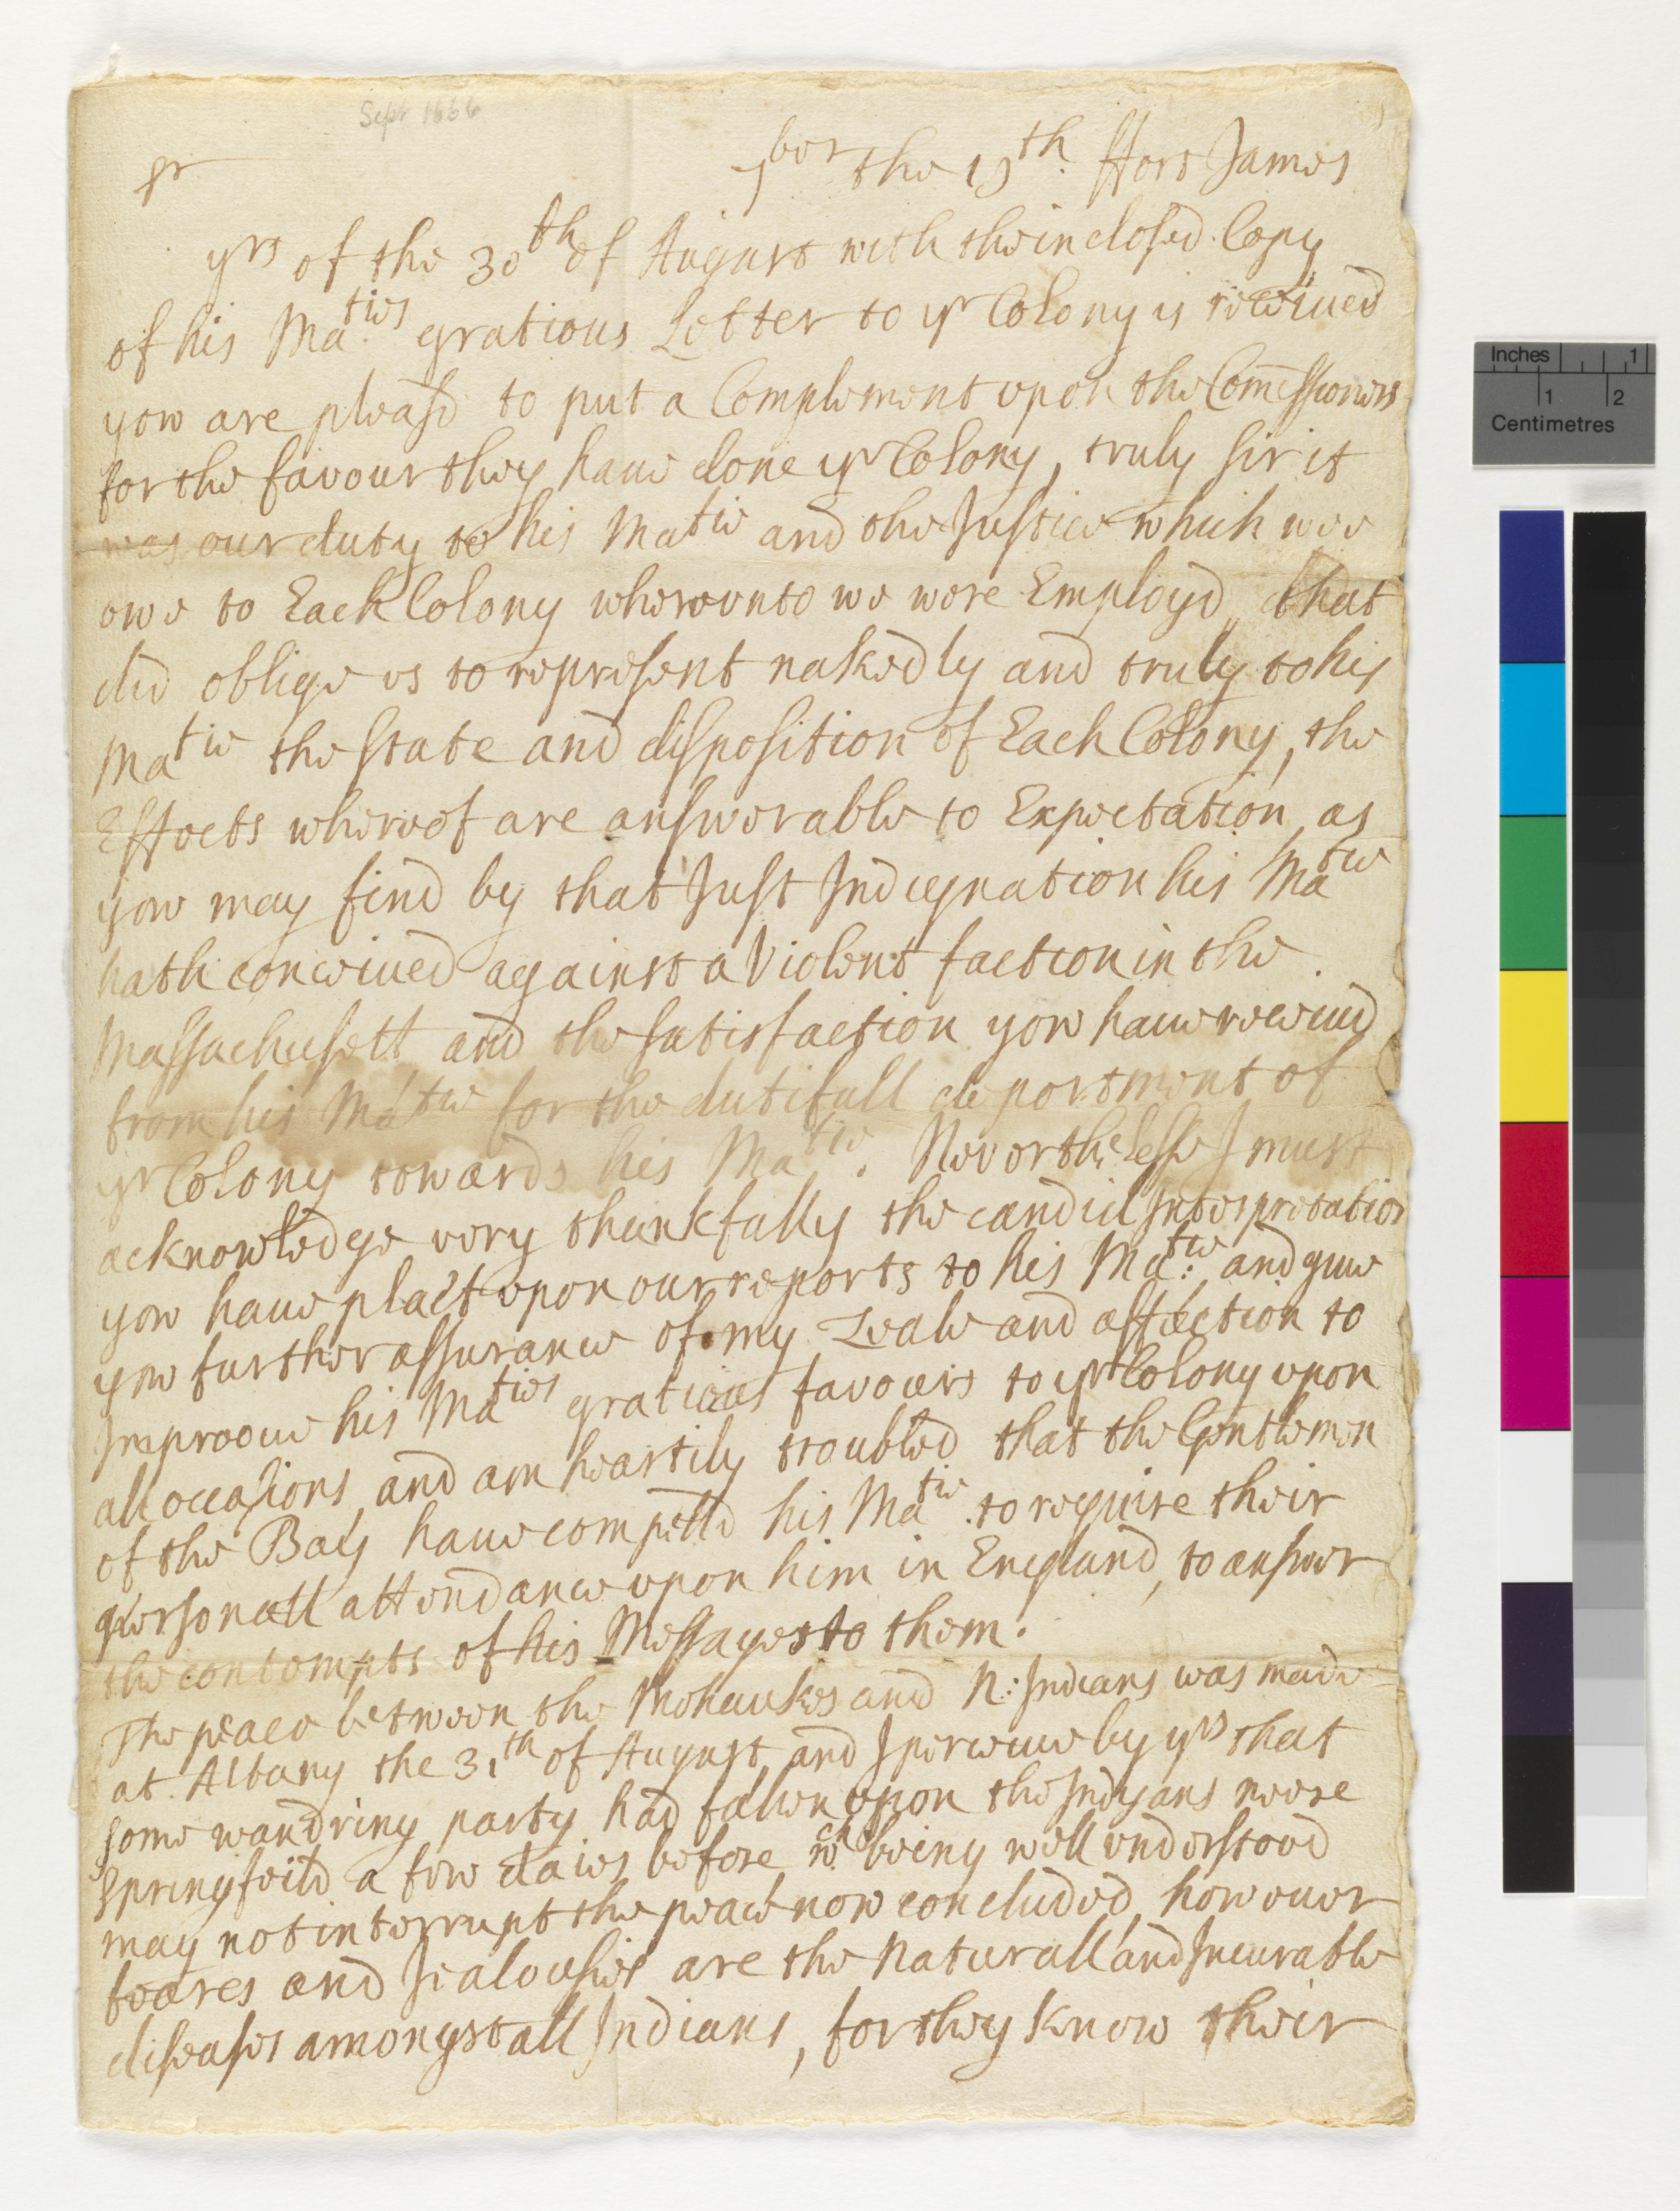 Sept 1666
Sr
7ber the 19th. ffort James
yrs of the 30th of August with the inclosed Copy
of his Maties gratious Letter to yr Colony is receiued
yow are pleasd to put a Complement upon the Comissioners
for the favour they haue done yr Colony, truly sir it
was our duty to his Matie and the Justice which wee
owe to Each Colony wherevnto we were Employd, that
did oblige vs to represent nakedly and truly to his
Matie the state and disposition of Each Colony, the
Effects whereof are answerable to Expectation, as
yow may find by that Just Indignation his Matie
hath conceiued against a Violent faction in the
Massachusett and the satisfaction yow haue receiud
from his Matie for the dutifull deportment of
yr Colony towards his Matie. Neverthelesse I must
acknowledge very thankfully the candid Interpretation
yow haue plact vpon our reports to his Matie: and giue
yow further assurance of my Zeale and affection to
Improoue his Maties gratious favours to yr Colony vpon
all occasions and am heartily troubled that the Gentlemen
of the Bay haue compelld his Matie. to require their
personall attendance vpon him in England, to answer
the contempts of his Messages to them.
The peace between the Mohaukes and N: Indians was made
at Albany the 31th of August, and I perceiue by yrs that
some wandring party had falen vpon the Indyans neere
Springfeild a few daies before, wch being well vnderstood
may not interrupt the peace now concluded, howeuer
feares and Jealousies are the naturall and Incurable
diseases amongst all Indians, for they know their